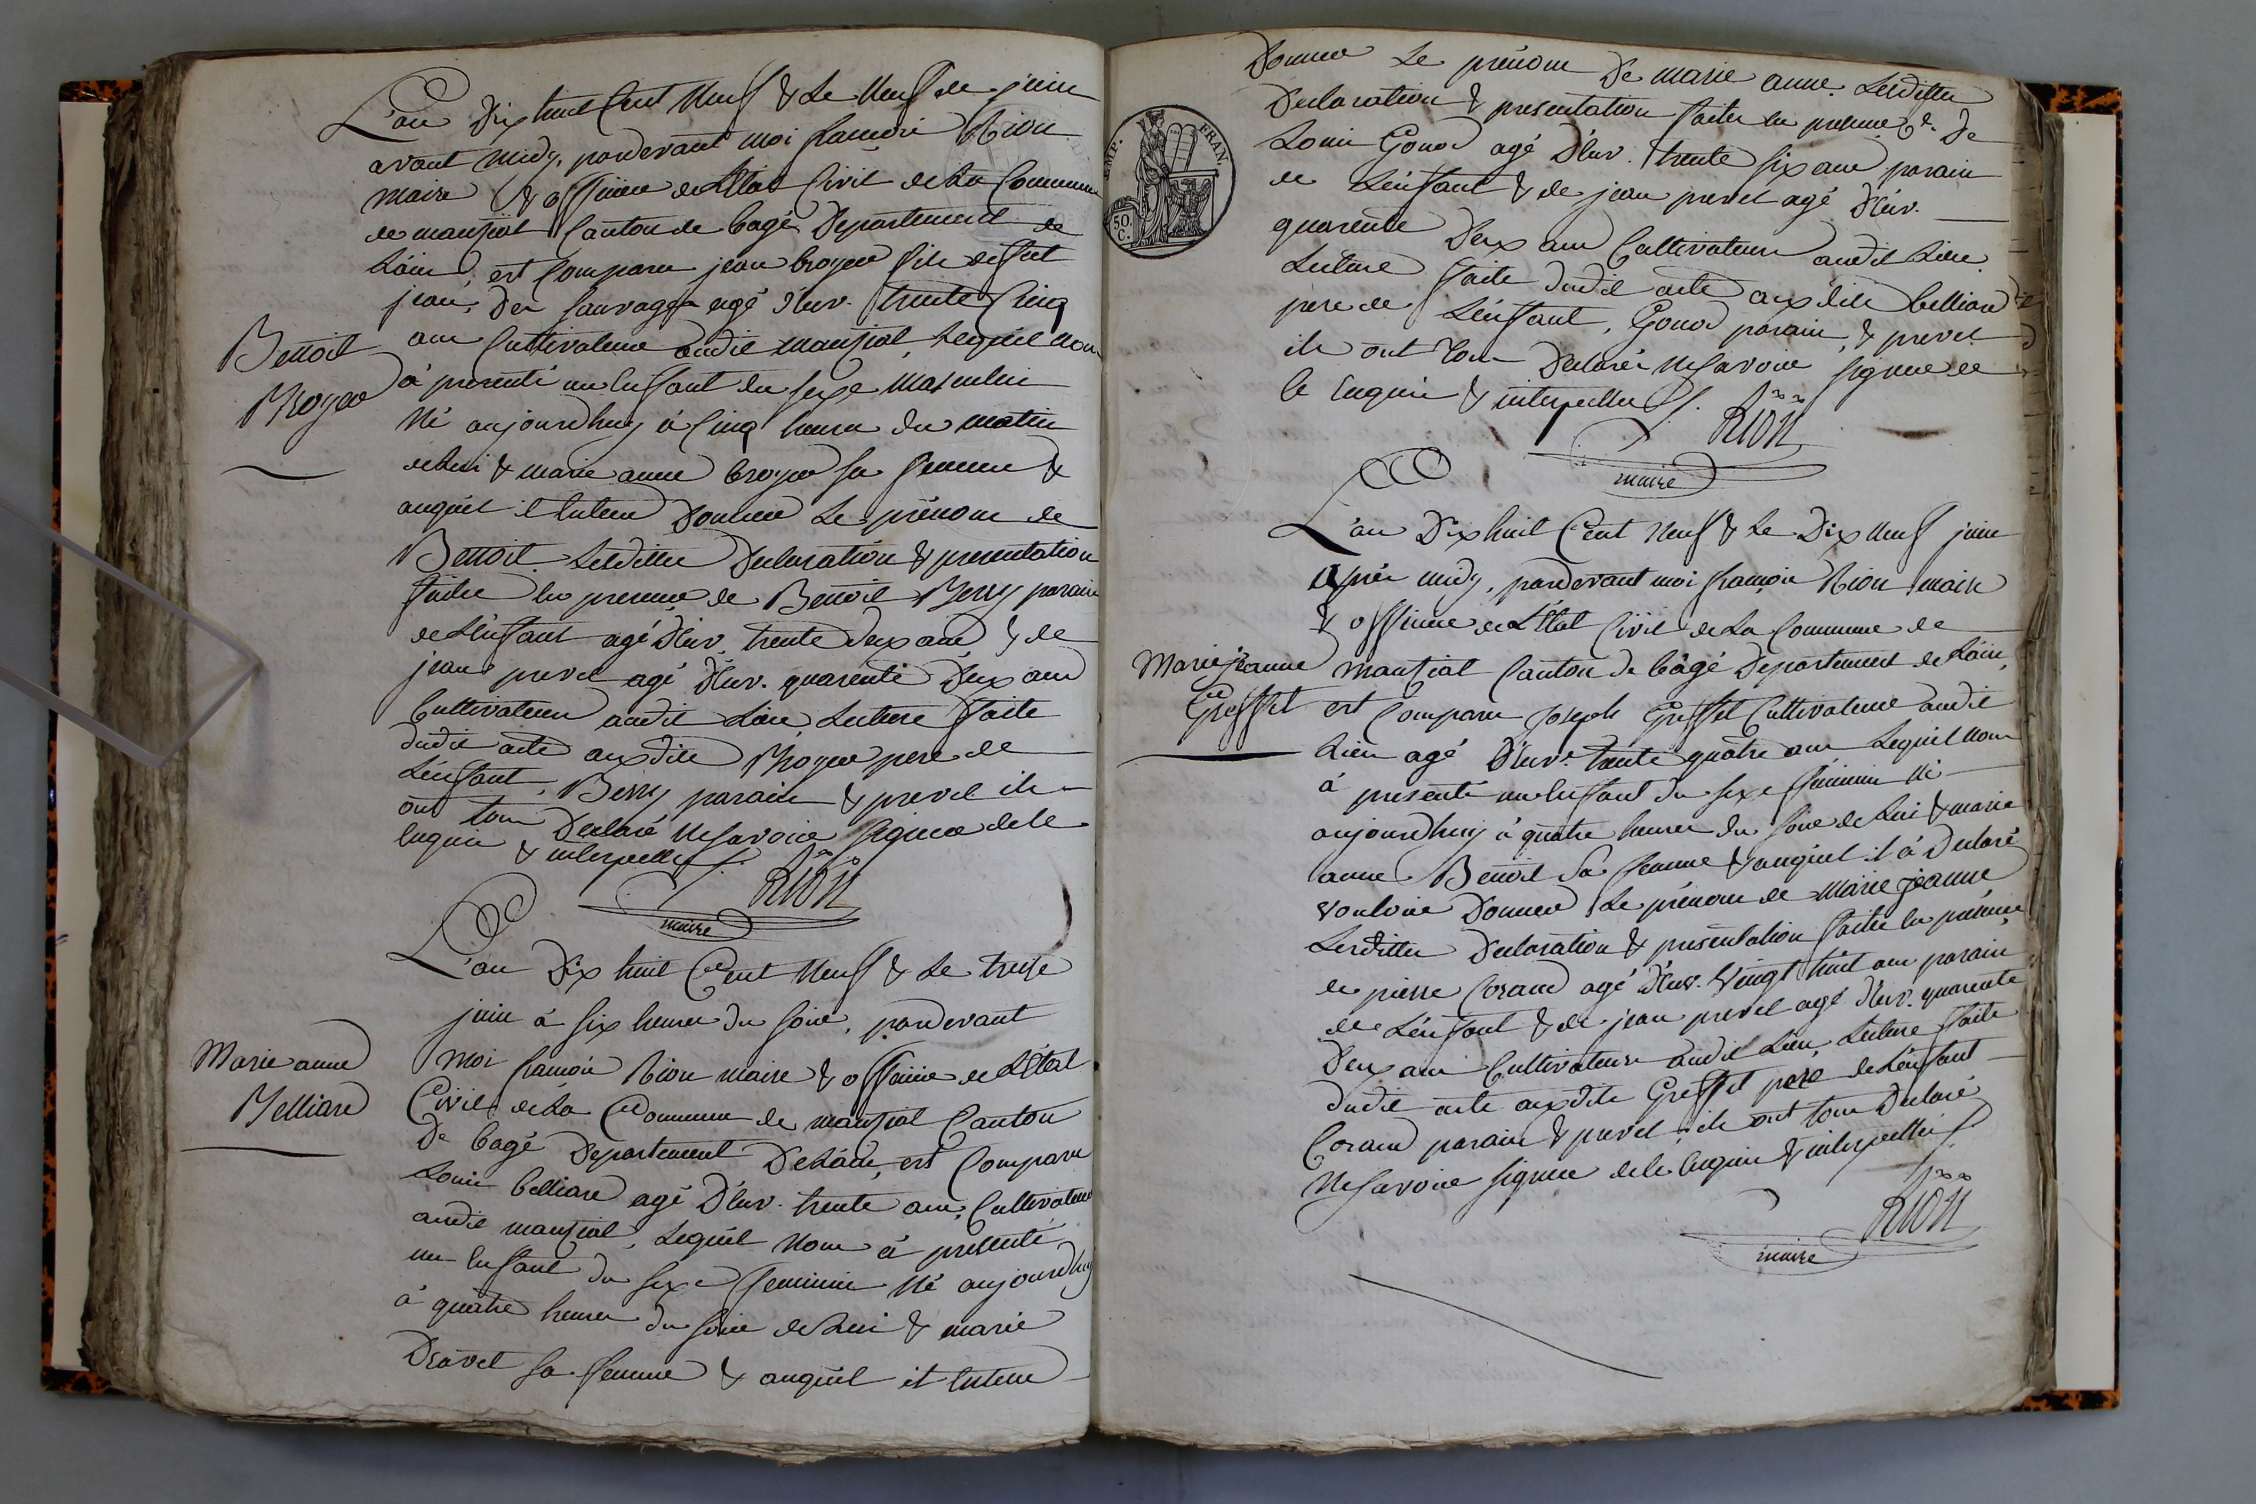 L'an Dix huit Cent Neuf & Le Neuf de juin
avant midy, pardevant moi françois Rion
maire & officier de L'Etat Civil de La Commune
de mantziat Canton de bagé Departement de
L'ain, est Comparu jean broyer fils de feut
jean, Des Sauvages agé d'Env. trente Cinq
ans Cultivateur audit mantziat, Lequel Nous
à presenté un Enfant du sexe Masculin
Né aujourdhuy à Cinq heures du matin
de Lui & marie anne broyer sa femme &
auquel il Entend Donner Le prénom de
Benoit. Lesdittes Declaration & presentation
faites En presence de Benoit Berry parain
de L'Enfant agé d'Env. trente deux ans & de
jean prevel agé d'Env. quarente Deux ans
Cultivateurs audit Lieu, Lecture faite
dudit acte auxdits Broyer pere de
L'énfant, Berry parain & prevel ils
ont tous Declaré Ne Savoir Signer de Ce
Enquis & interpellés.
RION
maire
Benoit
Broyer
L'an Dix huit Cent Neuf & Le treize
juin à six heures du soir, pardevant
Moi françois Rion maire & officier de L'Etat
Civil de La Commune de mantziat Canton
De bagé Departement De L'ain, est Comparu
Louis belliard agé D'Env. trente ans, Cultivateur
audit mantziat, Lequel Nous à presenté
un Enfant du sexe feminin Né aujourdhuy
à quatre heures du soir de Lui & marie
Dravet sa femme & auquel il Entend
Marie anne
Belliard
Donner Le prénom De marie anne. Lesdittes
Declaration & presentation faites En presence De
Louis Gonod agé D'Env. trente six ans parain
de L'énfant & de jean prevel agé D'Env.
quarente Deux ans Cultivateurs audit Lieu.
Lecture faite dudit acte auxdits belliard
pere de L'énfant, Gonod parain, & prevel
ils ont tous Declarés Ne Savoir signer de
Ce Enquis & interpellés.
RION
maire
EMP. FRAN.
50. C.
L'an Dix huit Cent Neuf & Le Dix Neuf juin
après midy, pardevant moi françois Rion maire
& officier de L'Etat Civil de La Commune de
mantziat Canton de bâgé Departement de L'ain,
est Comparu Joseph Greffet Cultivateur audit
Lieu agé D'Env. trente quatre ans Lequel Nous
à presenté un Enfant du sexe féminin Né
aujourdhuy à quatre heures du soir de Lui & marie
anne Benoit sa femme & auquel il à Declaré
Vouloir Donner Le prénom de Marie jeanne
Lesdittes Declaration & presentation faites En présence
de pierre Corand agé D'Env. Vingt huit ans parain
de L'énfant & de jean prevel agé D'Env. quarente
Deux ans Cultivateurs audit Lieu, Lecture faite
dudit acte auxdits Greffet pere de L'énfant
Corand parain & prevel, ils ont tous Declaré
Ne Savoir signer de Ce Enquis & interpellés.
RION
maire
Marie jeanne
Greffet